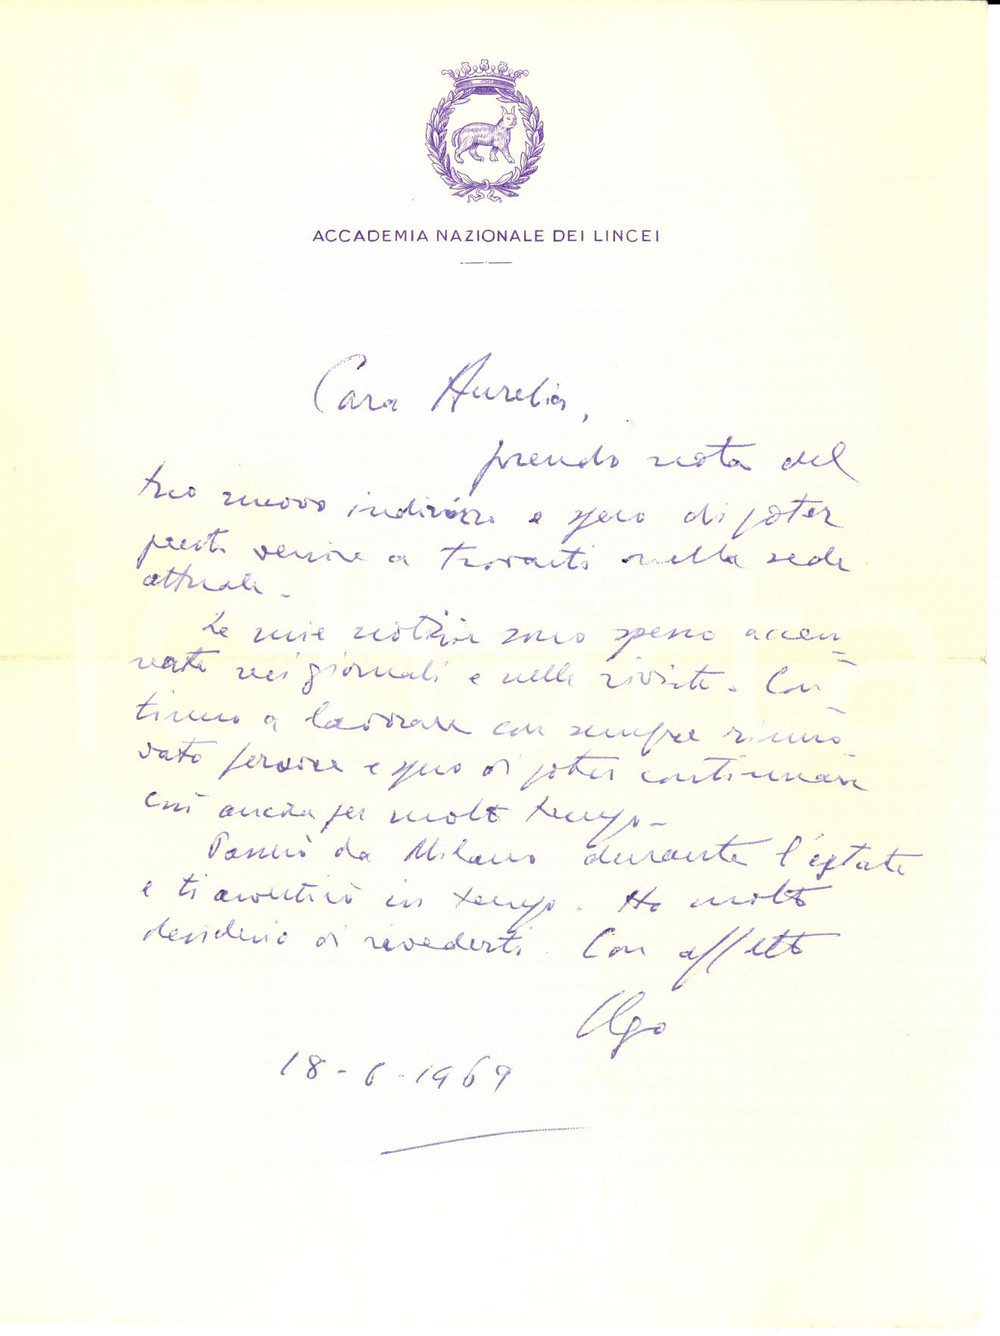 ACCADEMIA NAZIONALE DEI LINCEI
Cara Aurelia,
prendo nota del
tuo nuovo indirizzo e spero di poter
presto venire a trovarti nella sede
attuale.
Le mie notizie sono spesso accen-
nate nei giornali e nelle riviste. Con-
tinuo a lavorare con sempre rinno-
vato fervore e spero di poter continuare
così ancora per molto tempo.
Passerò da Milano durante l'estate
e ti avvertirò in tempo. Ho molto
desiderio di rivederti. Con affetto
18-6-1969